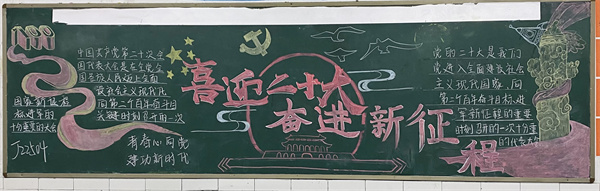 中国共产党第二十次全
国代表大会是在全党全
国各族人民迈上全面
设社会主义现代化
国家新征程
向第二个百年奋斗目
标进军的
关键时刻召开的一次
十分重要的大会
万2504
青春心向党
建功新时代
喜迎二十大
奋进新征程
党的二十大是我们
党进入全面建设社会
主义现代国家、向
第二个百年奋斗目标进
军新征程的重要
时刻召开的一次十分重要
的代表大会